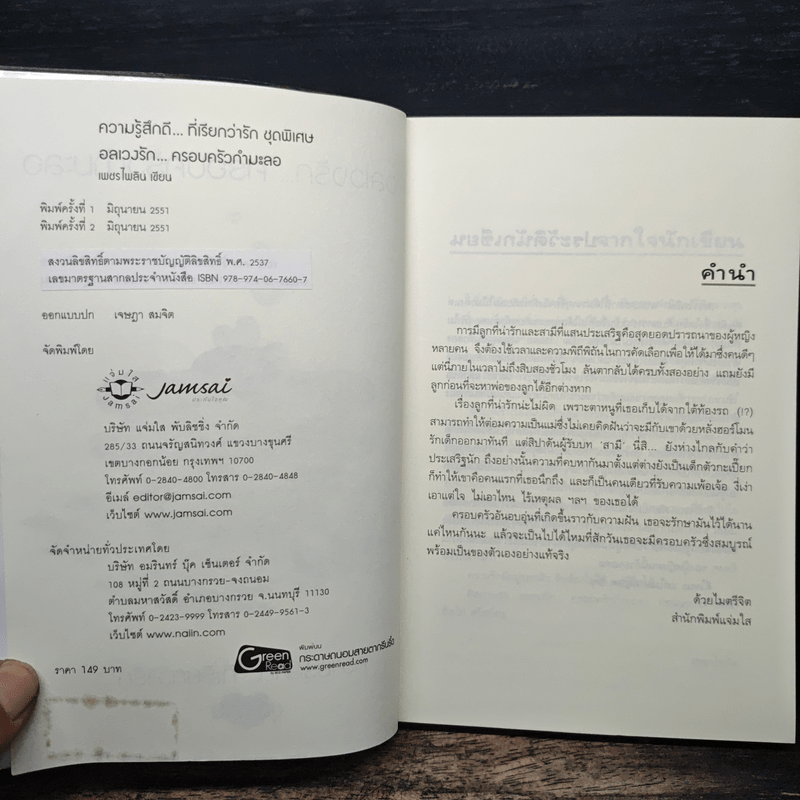 ความรู้สึกดี... ที่เรียกว่ารัก ชุดพิเศษ
อลเวงรัก... ครอบครัวกำมะลอ
เพชรไพลิน เขียน
พิมพ์ครั้งที่ 1 มิถุนายน 2551
พิมพ์ครั้งที่ 2 มิถุนายน 2551
สงวนลิขสิทธิ์ตามพระราชบัญญัติลิขสิทธิ์ พ.ศ. 2537
เลขมาตรฐานสากลประจำหนังสือ ISBN 978-974-06-7660-7
ออกแบบปก เจษฎา สมจิต
จัดพิมพ์โดย
แจ่มใส
Jamsai
jamsai
บริษัท แจ่มใส พับลิชชิ่ง จำกัด
285/33 ถนนจรัญสนิทวงศ์ แขวงบางขุนศรี
เขตบางกอกน้อย กรุงเทพฯ 10700
โทรศัพท์ 0-2840-4800 โทรสาร 0-2840-4848
อีเมล์ editor@jamsai.com
เว็บไซต์ www.jamsai.com
จัดจำหน่ายทั่วประเทศโดย
บริษัท อมรินทร์ บุ๊ค เซ็นเตอร์ จำกัด
108 หมู่ที่ 2 ถนนบางกรวย-จงถนอม
ตำบลมหาสวัสดิ์ อำเภอบางกรวย จ.นนทบุรี 11130
โทรศัพท์ 0-2423-9999 โทรสาร 0-2449-9561-3
เว็บไซต์ www.naiin.com
ราคา 149 บาท
Green Read
พิมพ์บน
กระดาษถนอมสายตากรีนรี้ด
www.greenread.com
คำนำ
การมีลูกที่น่ารักและสามีที่แสนประเสริฐคือสุดยอดปรารถนาของผู้หญิง
หลายคน จึงต้องใช้เวลาและความพิถีพิถันในการคัดเลือกเพื่อให้ได้มาซึ่งคนดีๆ
แต่นี่ภายในเวลาไม่ถึงสิบสองชั่วโมง ลันตากลับได้ครบทั้งสองอย่าง แถมยังมี
ลูกก่อนที่จะหาพ่อของลูกได้อีกต่างหาก
เรื่องลูกที่น่ารักน่ะไม่ผิด เพราะตาหนูที่เธอเก็บได้จากใต้ท้องรถ (!?)
สามารถทำให้ต่อมความเป็นแม่ซึ่งไม่เคยคิดฝันว่าจะมีกับเขาด้วยหลั่งฮอร์โมน
รักเด็กออกมาทันที แต่สิปาดันผู้รับบท 'สามี' นี่สิ... ยังห่างไกลกับคำว่า
ประเสริฐนัก ถึงอย่างนั้นความที่คบหากันมาตั้งแต่ต่างยังเป็นเด็กตัวกะเปี๊ยก
ก็ทำให้เขาคือคนแรกที่เธอนึกถึง และก็เป็นคนเดียวที่รับความเพ้อเจ้อ งี่เง่า
เอาแต่ใจ ไม่เอาไหน ไร้เหตุผล ฯลฯ ของเธอได้
ครอบครัวอันอบอุ่นที่เกิดขึ้นราวกับความฝัน เธอจะรักษามันไว้ได้นาน
แค่ไหนกันนะ แล้วจะเป็นไปได้ไหมที่สักวันเธอจะมีครอบครัวซึ่งสมบูรณ์
พร้อมเป็นของตัวเองอย่างแท้จริง
ด้วยไมตรีจิต
สำนักพิมพ์แจ่มใส